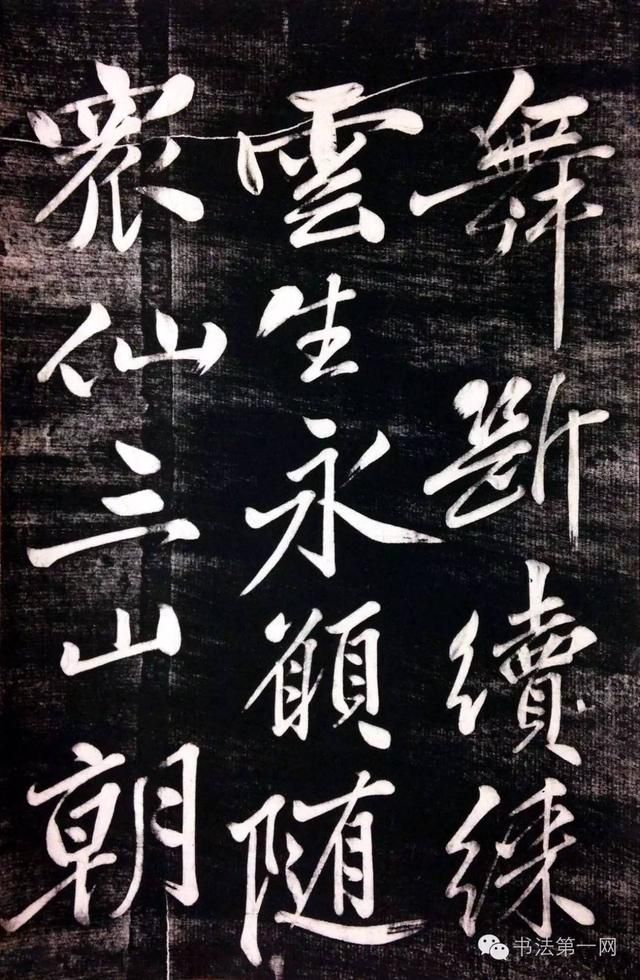 舞斷續綵
雲生永願随
眾仙三山朝
书法第一网